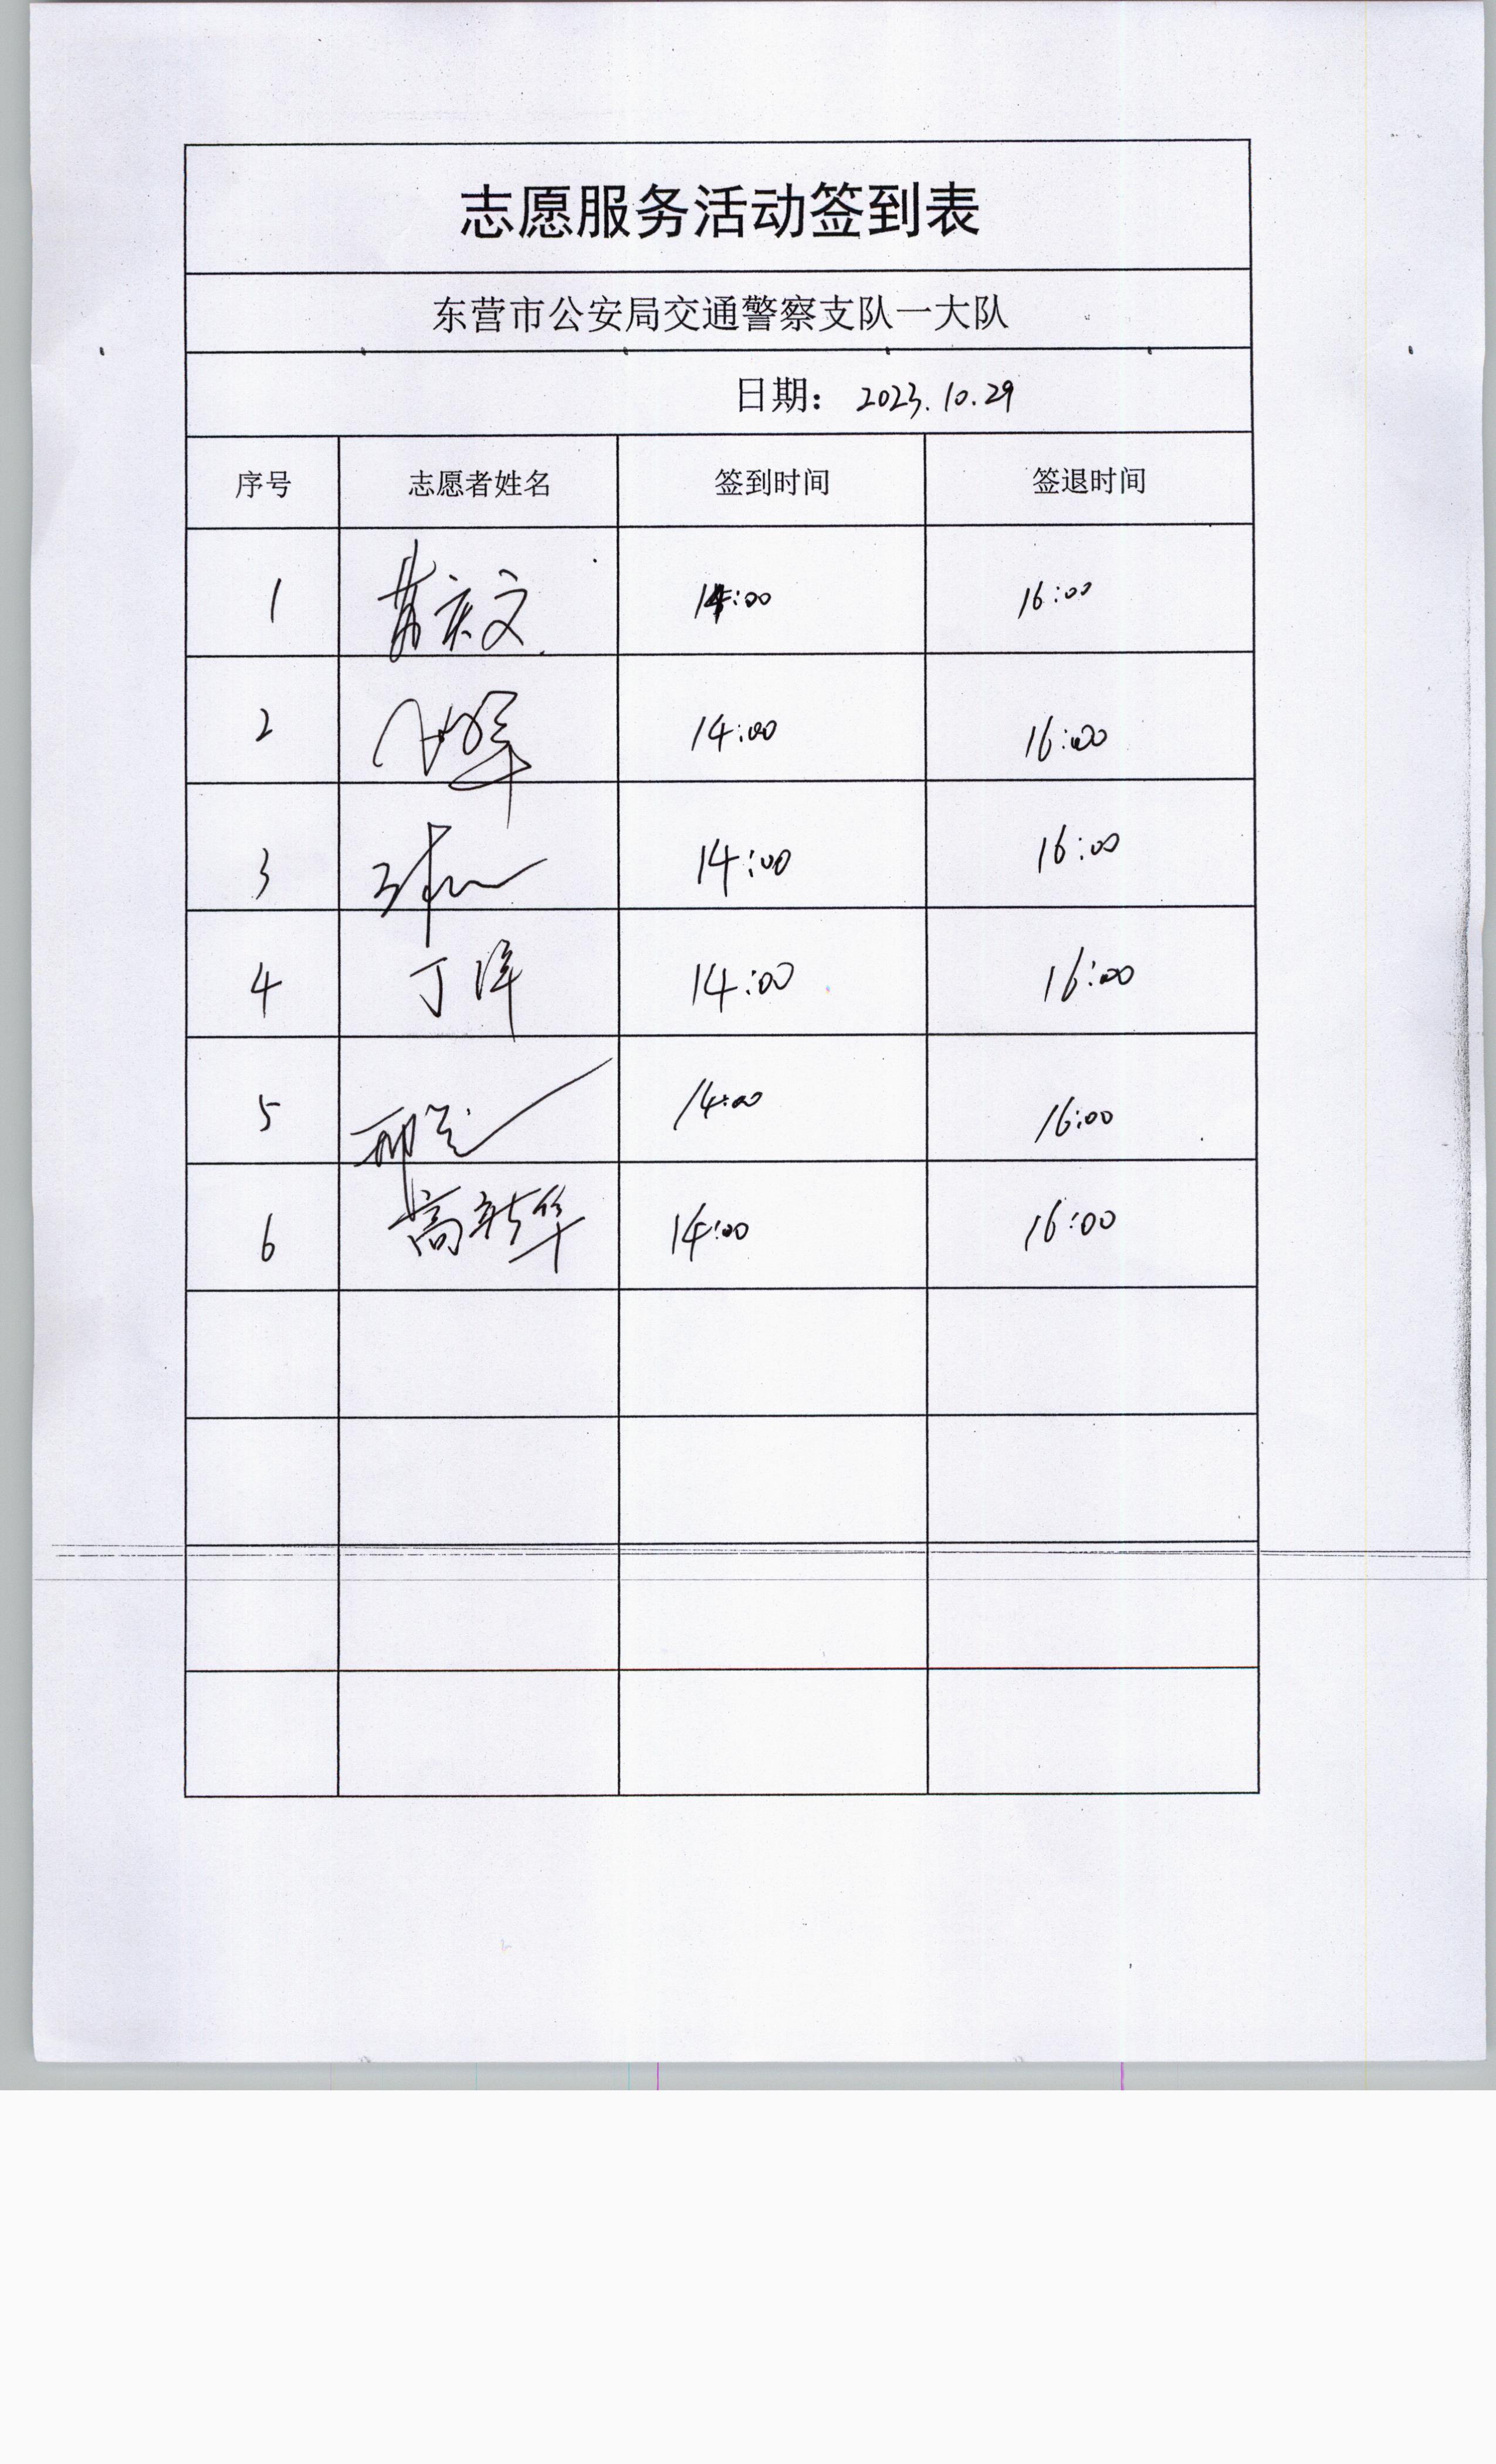 志愿服务活动签到表
东营市公安局交通警察支队一大队
日期： 2023.10.29
序号 志愿者姓名 签到时间 签退时间
1 14:00 16:00
2 14:00 16:00
3 14:00 16:00
4 丁洋 14:00 16:00
5 14:00 16:00
6 高新华 14:00 16:00